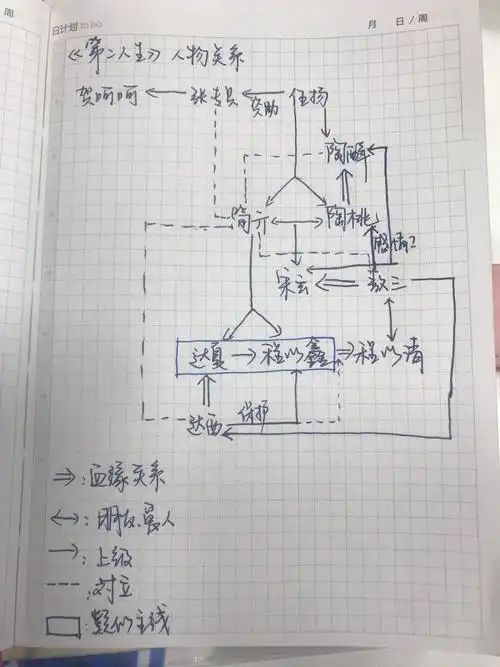 周
日计划 TO DO
月 日/周
《第二人生》人物关系
贺呵呵 张专员 资助 任扬
陶醉
简亓 陶桃
感情?
宋玄 数三
达夏 程以鑫 程以清
达西 保护
⇒:血缘关系
↔:朋友、爱人
→:上级
---:对立
▭:疑似主线